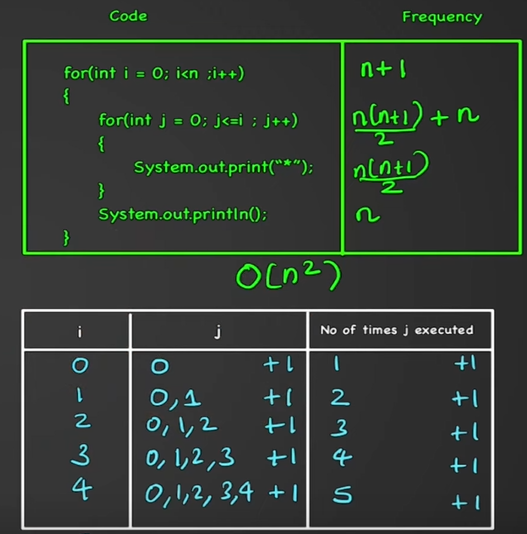 Code Frequency
for(int i = 0; i<n ;i++) n+1
{
for(int j = 0; j<=i ; j++) n(n+1)/2 + n
{
System.out.print("*"); n(n+1)/2
}
System.out.println(); n
}
O(n²)
i j No of times j executed
0 0 +1 1 +1
1 0,1 +1 2 +1
2 0,1,2 +1 3 +1
3 0,1,2,3 +1 4 +1
4 0,1,2,3,4 +1 5 +1